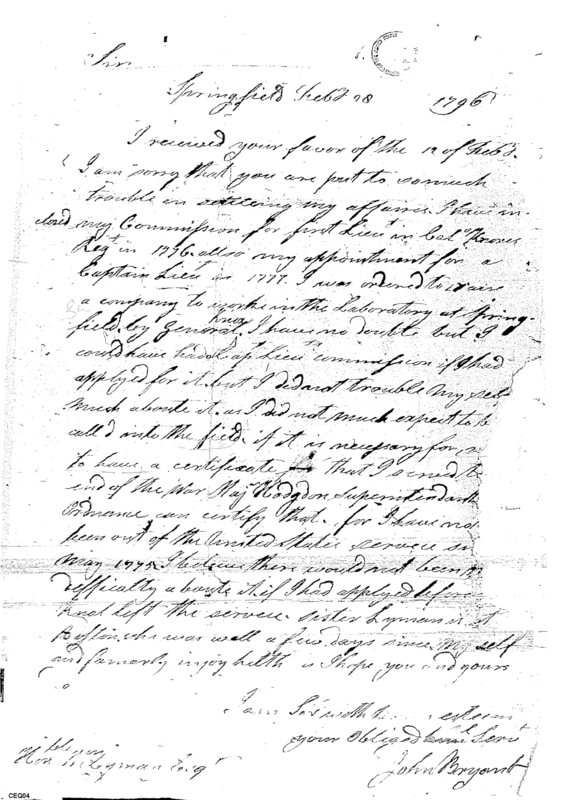 Sir
Springfield Feb.y 28 1796
I received your favor of the 12 of Feb.y.
I am sorry that you are put to somuch
trouble in settleing my affairs. I have in-
closed my Commission for first Lieut in Col.o Knoxes
Regt in 1776. allso my appointment for a
Captain Lieut in 1777. I was ordered to raise
a company to worke in the Laboratory at Spring-
field. by General Knox. I have no double but I
could have had a Capt Lieut commission if I had
applyed for it. but I did not trouble My self
Much aboute it. as I did not much expect to be
call'd into the field. if it is necessary for
to have a certificate that I served to
end of the War Maj.r Hodgdon Superintendant
Ordnance can certify that. for I have not
been out of the United States servece
May 1775. I believe there would not been
difficulty aboute it. if I had applyed before
Knox left the servece. Sister Lyman is at
Boston. she was well a few days since. My self
and famerly injoy helth as I hope you and yours
do
I am Sir with esteem
your Obliged Servt
John Bryant
Hon. Lyman Esqr
CEQ04